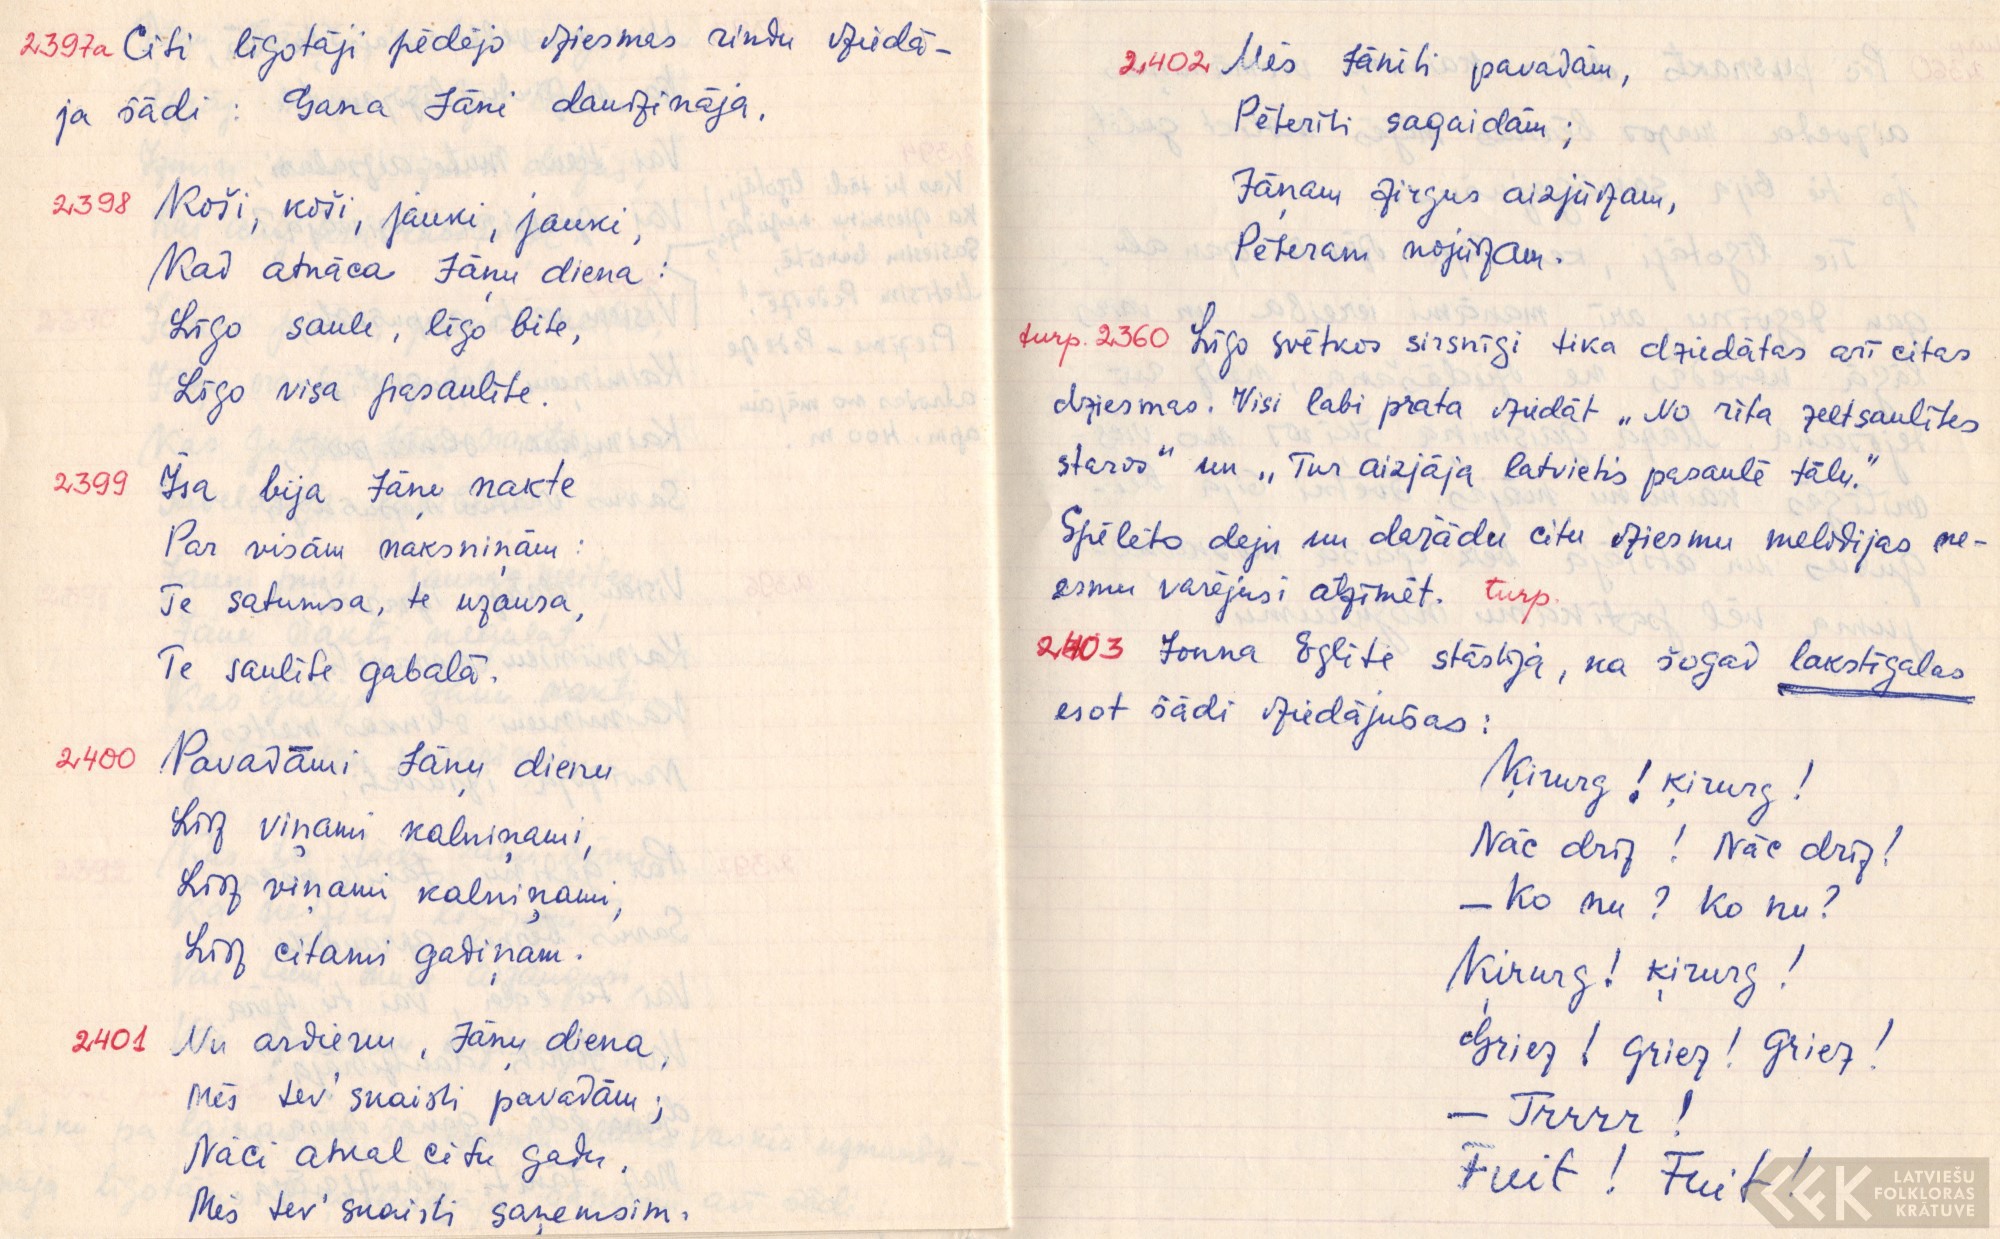 2397a Citi līgotāji pēdējo dziesmas rindu dziedā-
ja šādi: Gana Jāņi daudzināja.
2398 Koši, koši, jauki, jauki,
Kad atnāca Jāņu diena:
Līgo saule, līgo bite,
Līgo visa pasaulīte.
2399 Īsa bija Jāņu nakte
Par visām naksniņām:
Te satumsa, te uzausa,
Te saulīte gabalā.
2400 Pavadāmi Jāņu dienu
Līdz viņami kalniņami,
Līdz viņami kalniņami,
Līdz citami gadiņam.
2401 Nu ardievu, Jāņu diena,
Mēs tev' skaisti pavadām;
Nāci atkal citu gadu,
Mēs tev' skaisti saņemsim.
2402 Mēs Jānīti pavadām,
Pēterīti sagaidām;
Jāņam zirgus aizjūdzam,
Pēteram nojūdzam.
turp. 2360 Līgo svētkos sirsnīgi tika dziedātas arī citas
dziesmas. Visi labi prata dziedāt „No rīta zeltsaulītes
staros" un „Tur aizjāja latvietis pasaulē tālu."
Spēlēto deju un dažādu citu dziesmu melodijas ne-
esmu varējusi atzīmēt. turp.
2403 Jonna Eglīte stāstīja, ka šogad lakstīgalas
esot šādi dziedājušas:
Ķirurg! ķirurg!
Nāc drīz! Nāc drīz!
– Ko nu? Ko nu?
Ķirurg! ķirurg!
Griez! Griez! Griez!
– Trrrr!
Fuit! Fuit!
LATVIEŠU
FOLKLORAS
KRĀTUVE